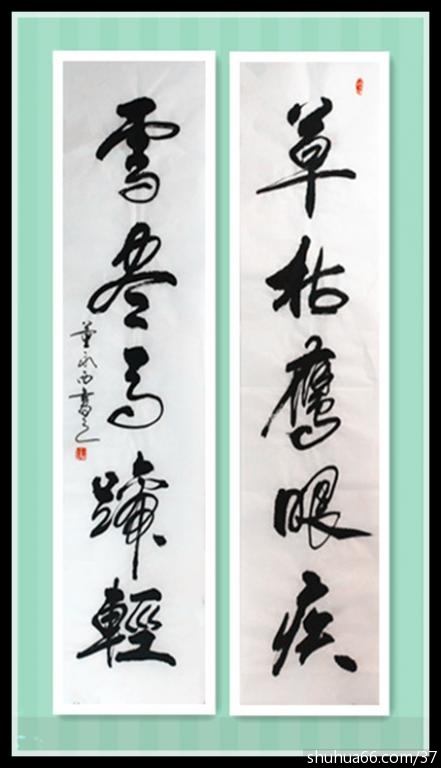 草枯鹰眼疾
雪尽马蹄輕
董永西書
shuhua66.com/37